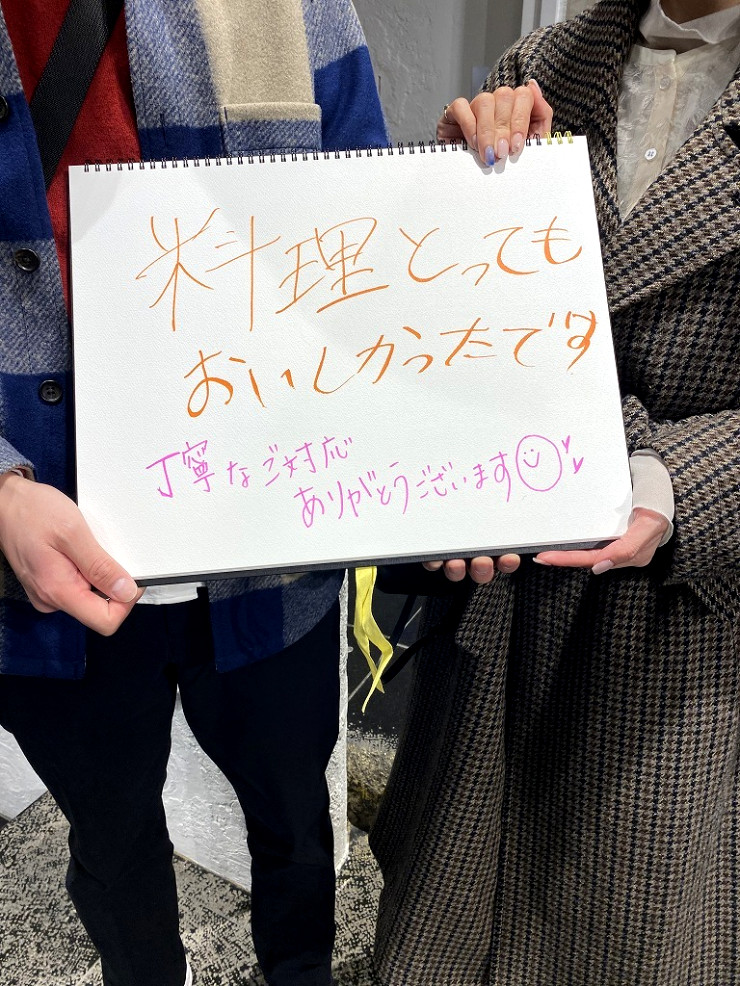 料理とっても
おいしかったです
丁寧なご対応
ありがとうございます